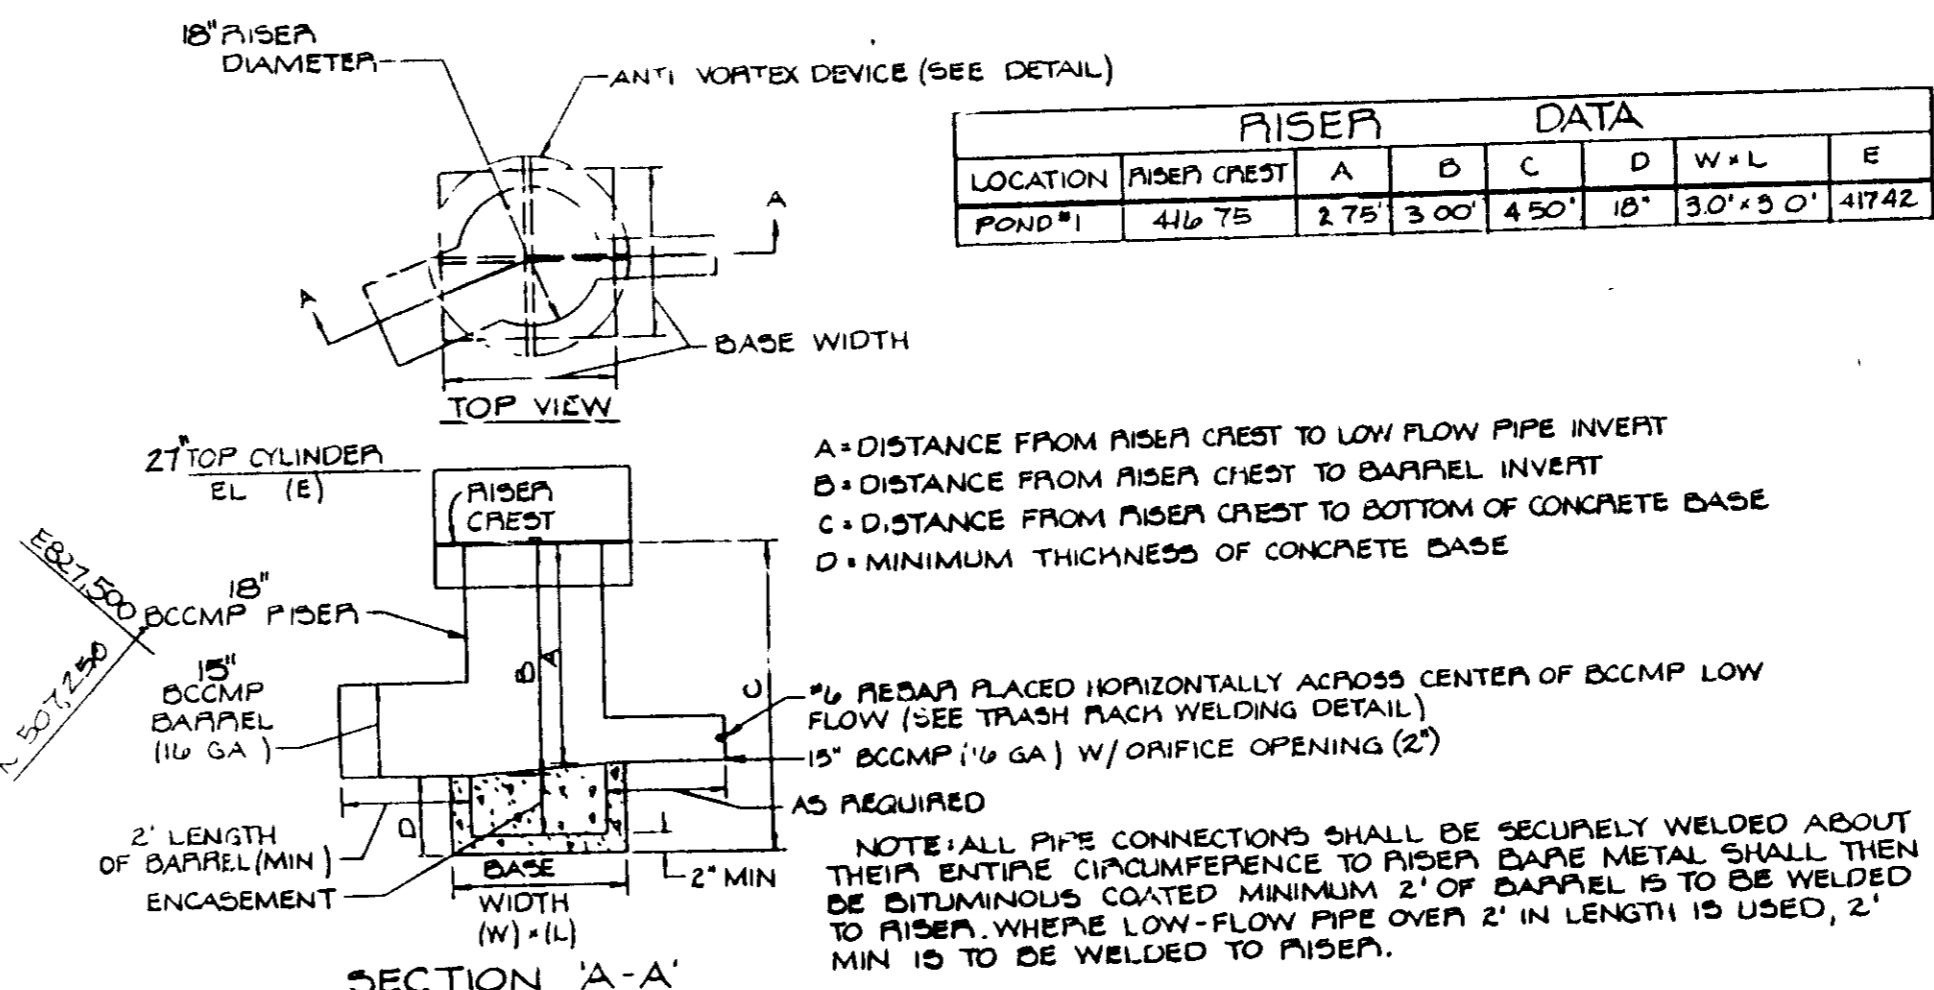 18" RISER
DIAMETER
ANTI VORTEX DEVICE (SEE DETAIL)
A
A
BASE WIDTH
TOP VIEW
RISER DATA
LOCATION RISER CREST A B C D W × L E
POND #1 416 75 2 75' 3 00' 4 50' 18" 3.0' × 3 0' 417 42
27" TOP CYLINDER
EL (E)
RISER
CREST
A = DISTANCE FROM RISER CREST TO LOW FLOW PIPE INVERT
B = DISTANCE FROM RISER CREST TO BARREL INVERT
C = DISTANCE FROM RISER CREST TO BOTTOM OF CONCRETE BASE
D = MINIMUM THICKNESS OF CONCRETE BASE
E827,500
507,250
18"
BCCMP RISER
15"
BCCMP
BARREL
(16 GA )
B
A
C
D
#6 REBAR PLACED HORIZONTALLY ACROSS CENTER OF BCCMP LOW
FLOW (SEE TRASH RACK WELDING DETAIL)
15" BCCMP (16 GA ) W/ ORIFICE OPENING (2")
AS REQUIRED
2' LENGTH
OF BARREL (MIN )
ENCASEMENT
BASE
WIDTH
(W) × (L)
2" MIN
SECTION 'A-A'
NOTE: ALL PIPE CONNECTIONS SHALL BE SECURELY WELDED ABOUT
THEIR ENTIRE CIRCUMFERENCE TO RISER BARE METAL SHALL THEN
BE BITUMINOUS COATED MINIMUM 2' OF BARREL IS TO BE WELDED
TO RISER. WHERE LOW-FLOW PIPE OVER 2' IN LENGTH IS USED, 2'
MIN IS TO BE WELDED TO RISER.